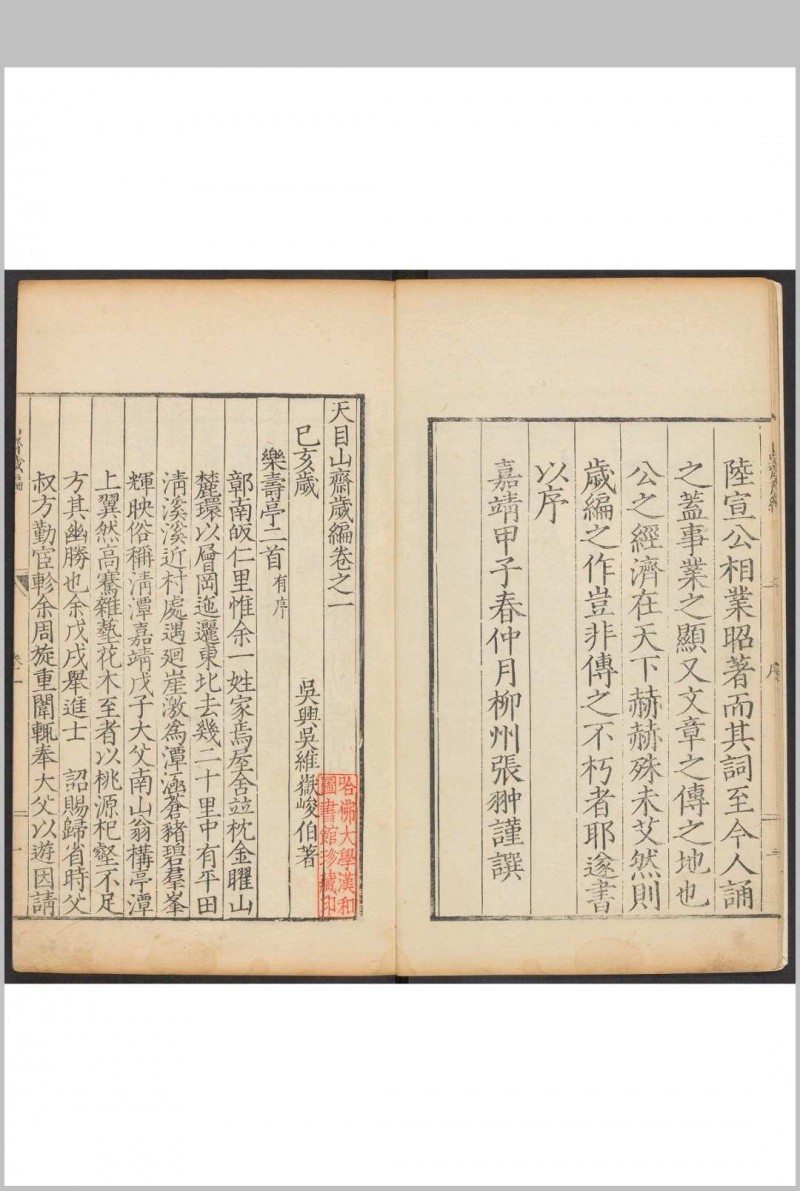 陸宣公相業昭著而其詞至今人誦
之蓋事業之顯又文章之傳之地也
公之經濟在天下赫赫殊未艾然則
歲編之作豈非傳之不朽者耶遂書
以序
嘉靖甲子春仲月柳州張翀謹譔
序
天目山齋歲編卷之一
吳興吳維嶽峻伯著
己亥歲
樂壽亭二首有序
鄣南皈仁里惟余一姓家焉屋舍竝枕金矅山
麓環以層岡迤邐東北去幾二十里中有平田
清溪溪近村處遇廻崖激爲潭涵蒼豬碧羣峯
輝映俗稱清潭嘉靖戊子大父南山翁構亭潭
上翼然高騫雜藝花木至者以桃源杞壑不足
方其幽勝也余戊戌舉進士 詔賜歸省時父
叔方勤宦軫余周旋重闈輒奉大父以遊因請
哈佛大學漢和圖書館珍藏印